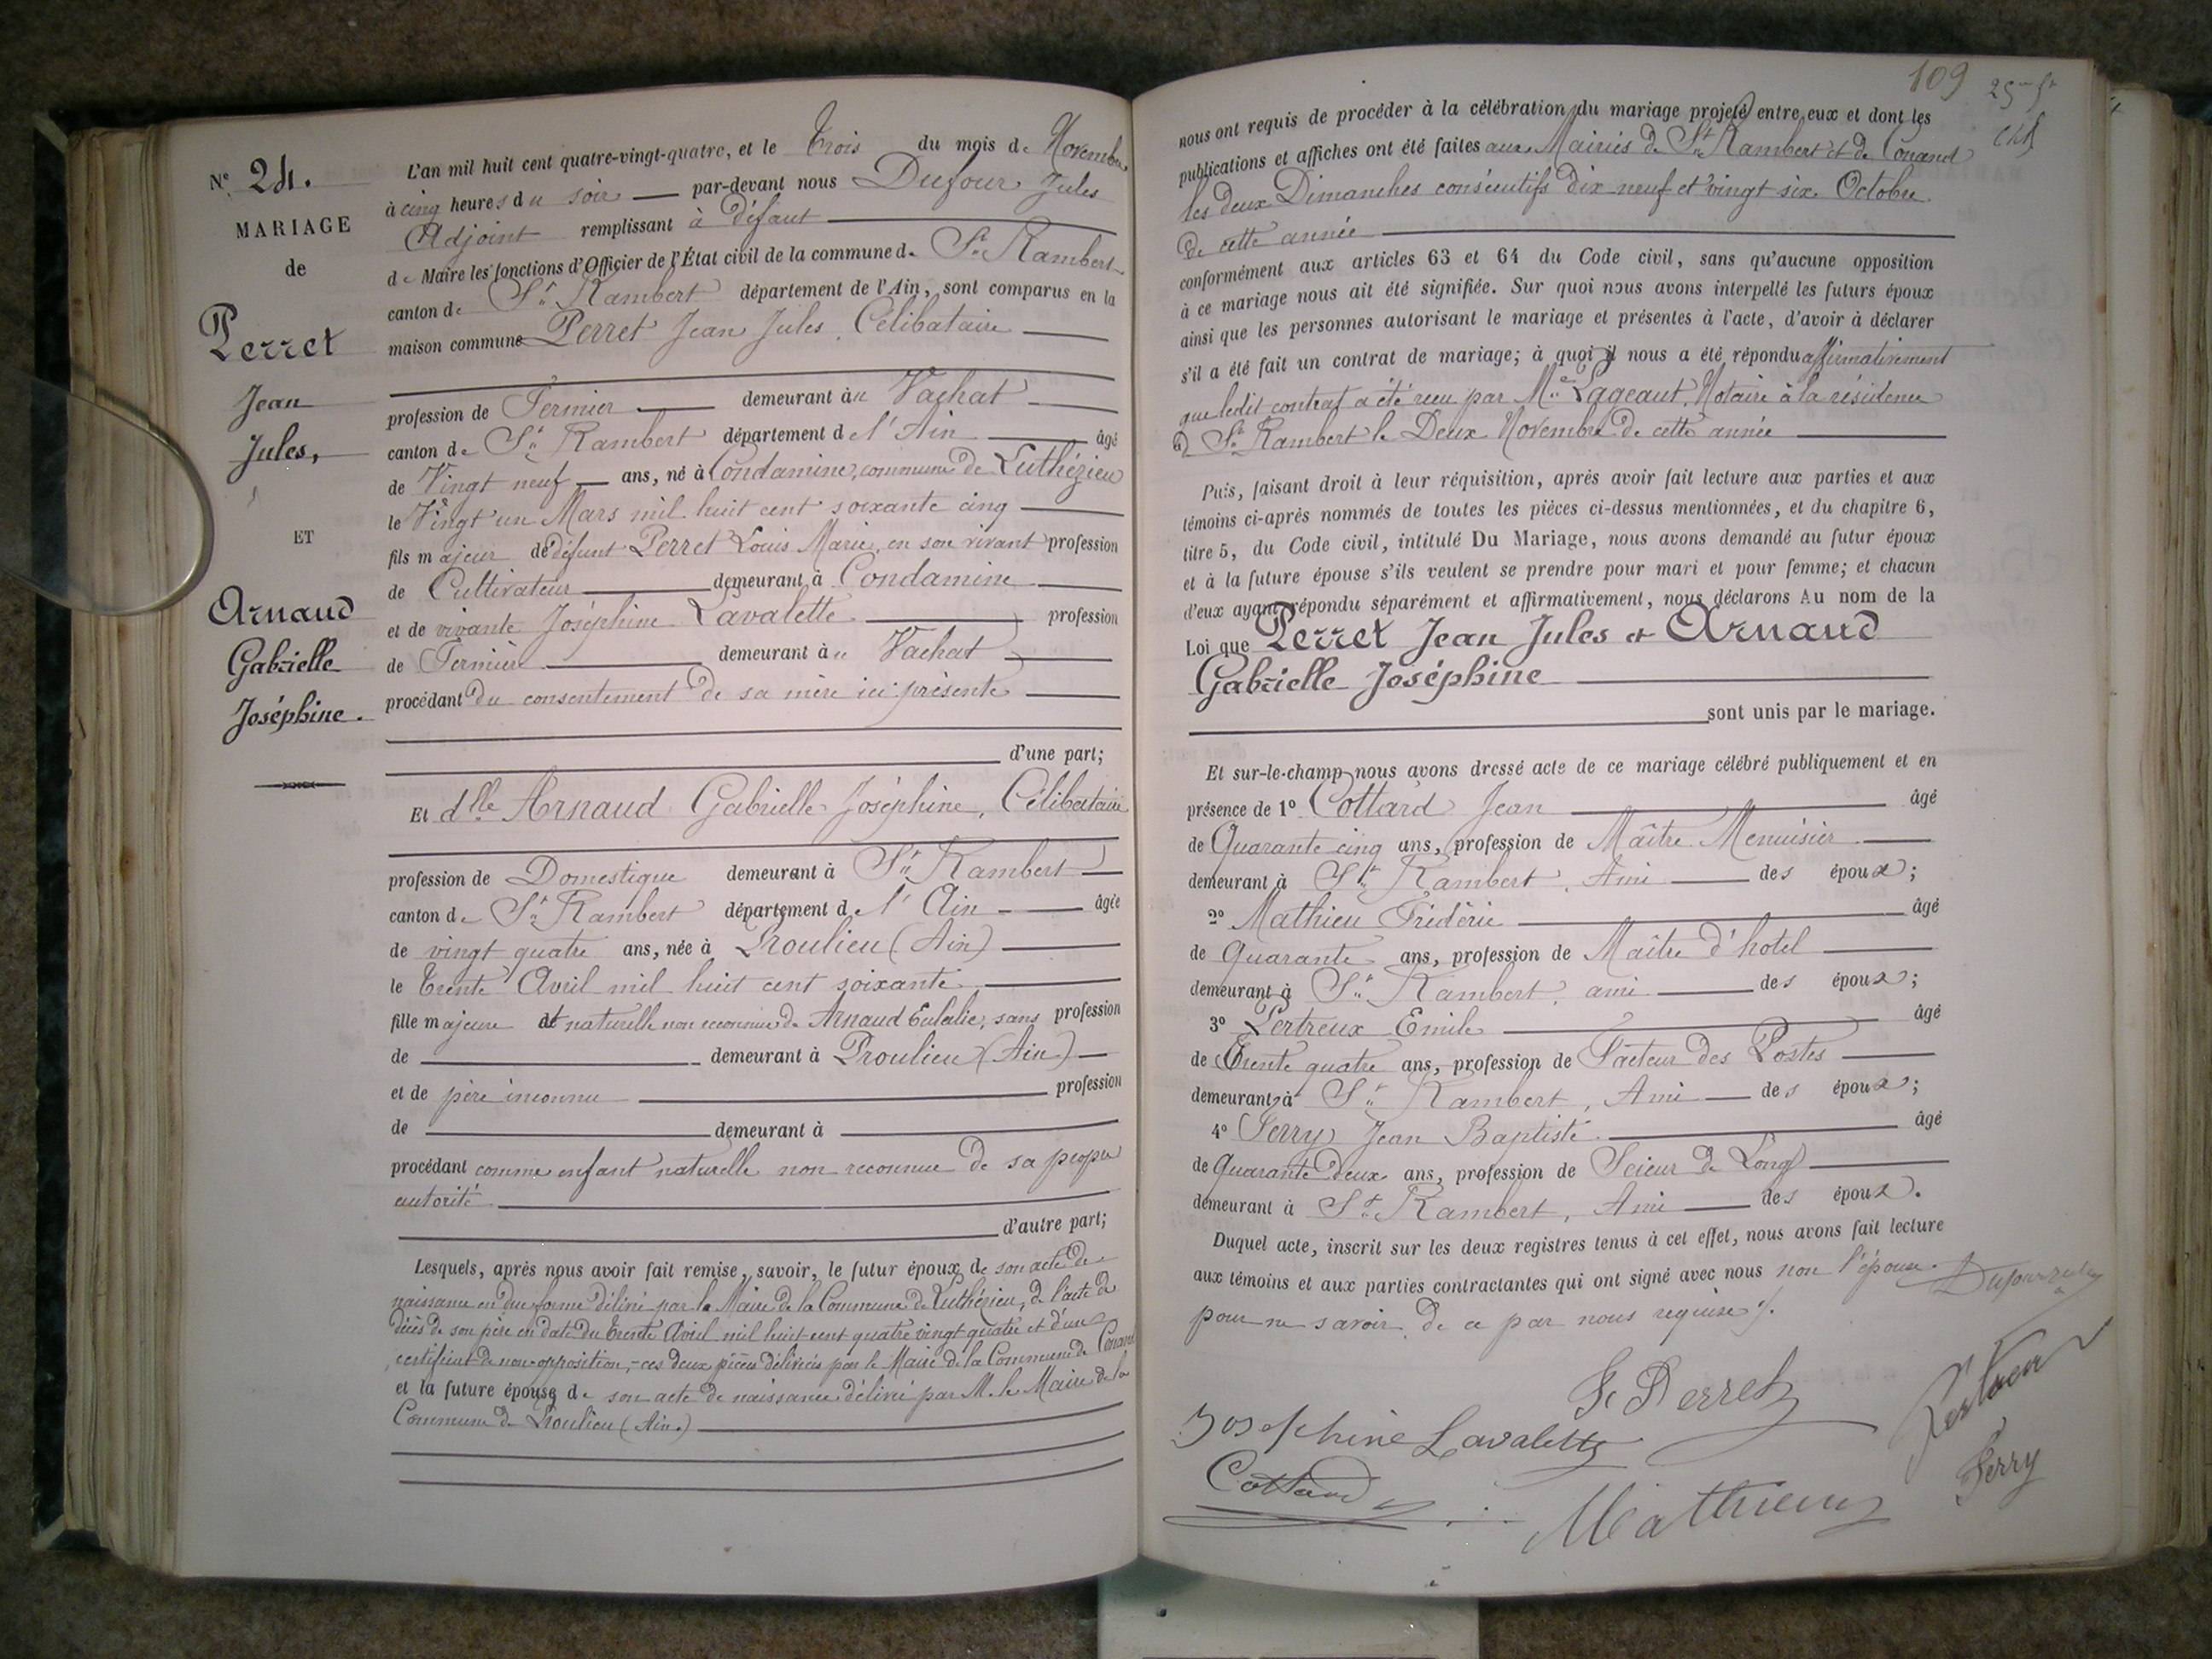 Nº 24.
MARIAGE
de
Perret
Jean
Jules,
ET
Arnaud
Gabrielle
Joséphine.
L'an mil huit cent quatre-vingt-quatre, et le Trois du mois de Novembre
à cinq heures du soir par-devant nous Dufour Jules
Adjoint remplissant à défaut
de Maire les fonctions d'Officier de l'État civil de la commune de St Rambert
canton de St Rambert département de l'Ain, sont comparus en la
maison commune Perret Jean Jules, Célibataire
profession de Fermier demeurant au Vachat
canton de St Rambert département de l'Ain âgé
de Vingt neuf ans, né à Condamine, commune de Luthézieu
le Vingt un Mars mil huit cent soixante cinq
fils majeur de défunt Perret Louis Marie, en son vivant profession
de Cultivateur demeurant à Condamine
et de vivante Joséphine Lavalette profession
de Fermière demeurant au Vachat
procédant du consentement de sa mère ici présente
d'une part;
Et dlle Arnaud Gabrielle Joséphine, Célibataire
profession de Domestique demeurant à St Rambert
canton de St Rambert département de l'Ain âgée
de vingt quatre ans, née à Proulieu (Ain)
le Trente Avril mil huit cent soixante
fille majeure et naturelle non reconnue de Arnaud Eulalie, sans profession
de demeurant à Proulieu (Ain)
et de père inconnu profession
de demeurant à
procédant comme enfant naturelle non reconnue de sa propre
autorité
d'autre part;
Lesquels, après nous avoir fait remise, savoir, le futur époux de son acte de
naissance en due forme délivré par le Maire de la Commune de Luthézieu, de l'acte de
décès de son père en date du trente Avril mil huit cent quatre vingt quatre et d'un
certificat de non-opposition,- ces deux pièces délivrées par le Maire de la Commune de Conand
et la future épouse de son acte de naissance délivré par M. le Maire de la
Commune de Proulieu (Ain.)
109
nous ont requis de procéder à la célébration du mariage projeté entre eux et dont les
publications et affiches ont été faites aux Mairies de St Rambert et de Conand
les deux Dimanches consécutifs dix neuf et vingt six Octobre
de cette année
conformément aux articles 63 et 64 du Code civil, sans qu'aucune opposition
à ce mariage nous ait été signifiée. Sur quoi nous avons interpellé les futurs époux
ainsi que les personnes autorisant le mariage et présentes à l'acte, d'avoir à déclarer
s'il a été fait un contrat de mariage; à quoi il nous a été répondu affirmativement
que ledit contrat a été reçu par Me Lageaut, Notaire à la résidence
de St Rambert le Deux Novembre de cette année
Puis, faisant droit à leur réquisition, après avoir fait lecture aux parties et aux
témoins ci-après nommés de toutes les pièces ci-dessus mentionnées, et du chapitre 6,
titre 5, du Code civil, intitulé Du Mariage, nous avons demandé au futur époux
et à la future épouse s'ils veulent se prendre pour mari et pour femme; et chacun
d'eux ayant répondu séparément et affirmativement, nous déclarons Au nom de la
Loi que Perret Jean Jules et Arnaud
Gabrielle Joséphine
sont unis par le mariage.
Et sur-le-champ nous avons dressé acte de ce mariage célébré publiquement et en
présence de 1º Cottard Jean âgé
de Quarante cinq ans, profession de Maître Menuisier
demeurant à St Rambert, Ami des époux;
2º Mathieu Frédéric âgé
de Quarante ans, profession de Maître d'hotel
demeurant à St Rambert, ami des époux;
3º Pertreux Emile âgé
de Trente quatre ans, profession de Facteur des Postes
demeurant à St Rambert, Ami des époux;
4º Ferry Jean Baptiste âgé
de Quarante deux ans, profession de Scieur de Long
demeurant à St Rambert, Ami des époux.
Duquel acte, inscrit sur les deux registres tenus à cet effet, nous avons fait lecture
aux témoins et aux parties contractantes qui ont signé avec nous non l'épouse
pour ne savoir, de ce par nous requise ./.
Dufour Jules
J Perret
Josephine Lavalette
Cottard
Mathieu
Ferry